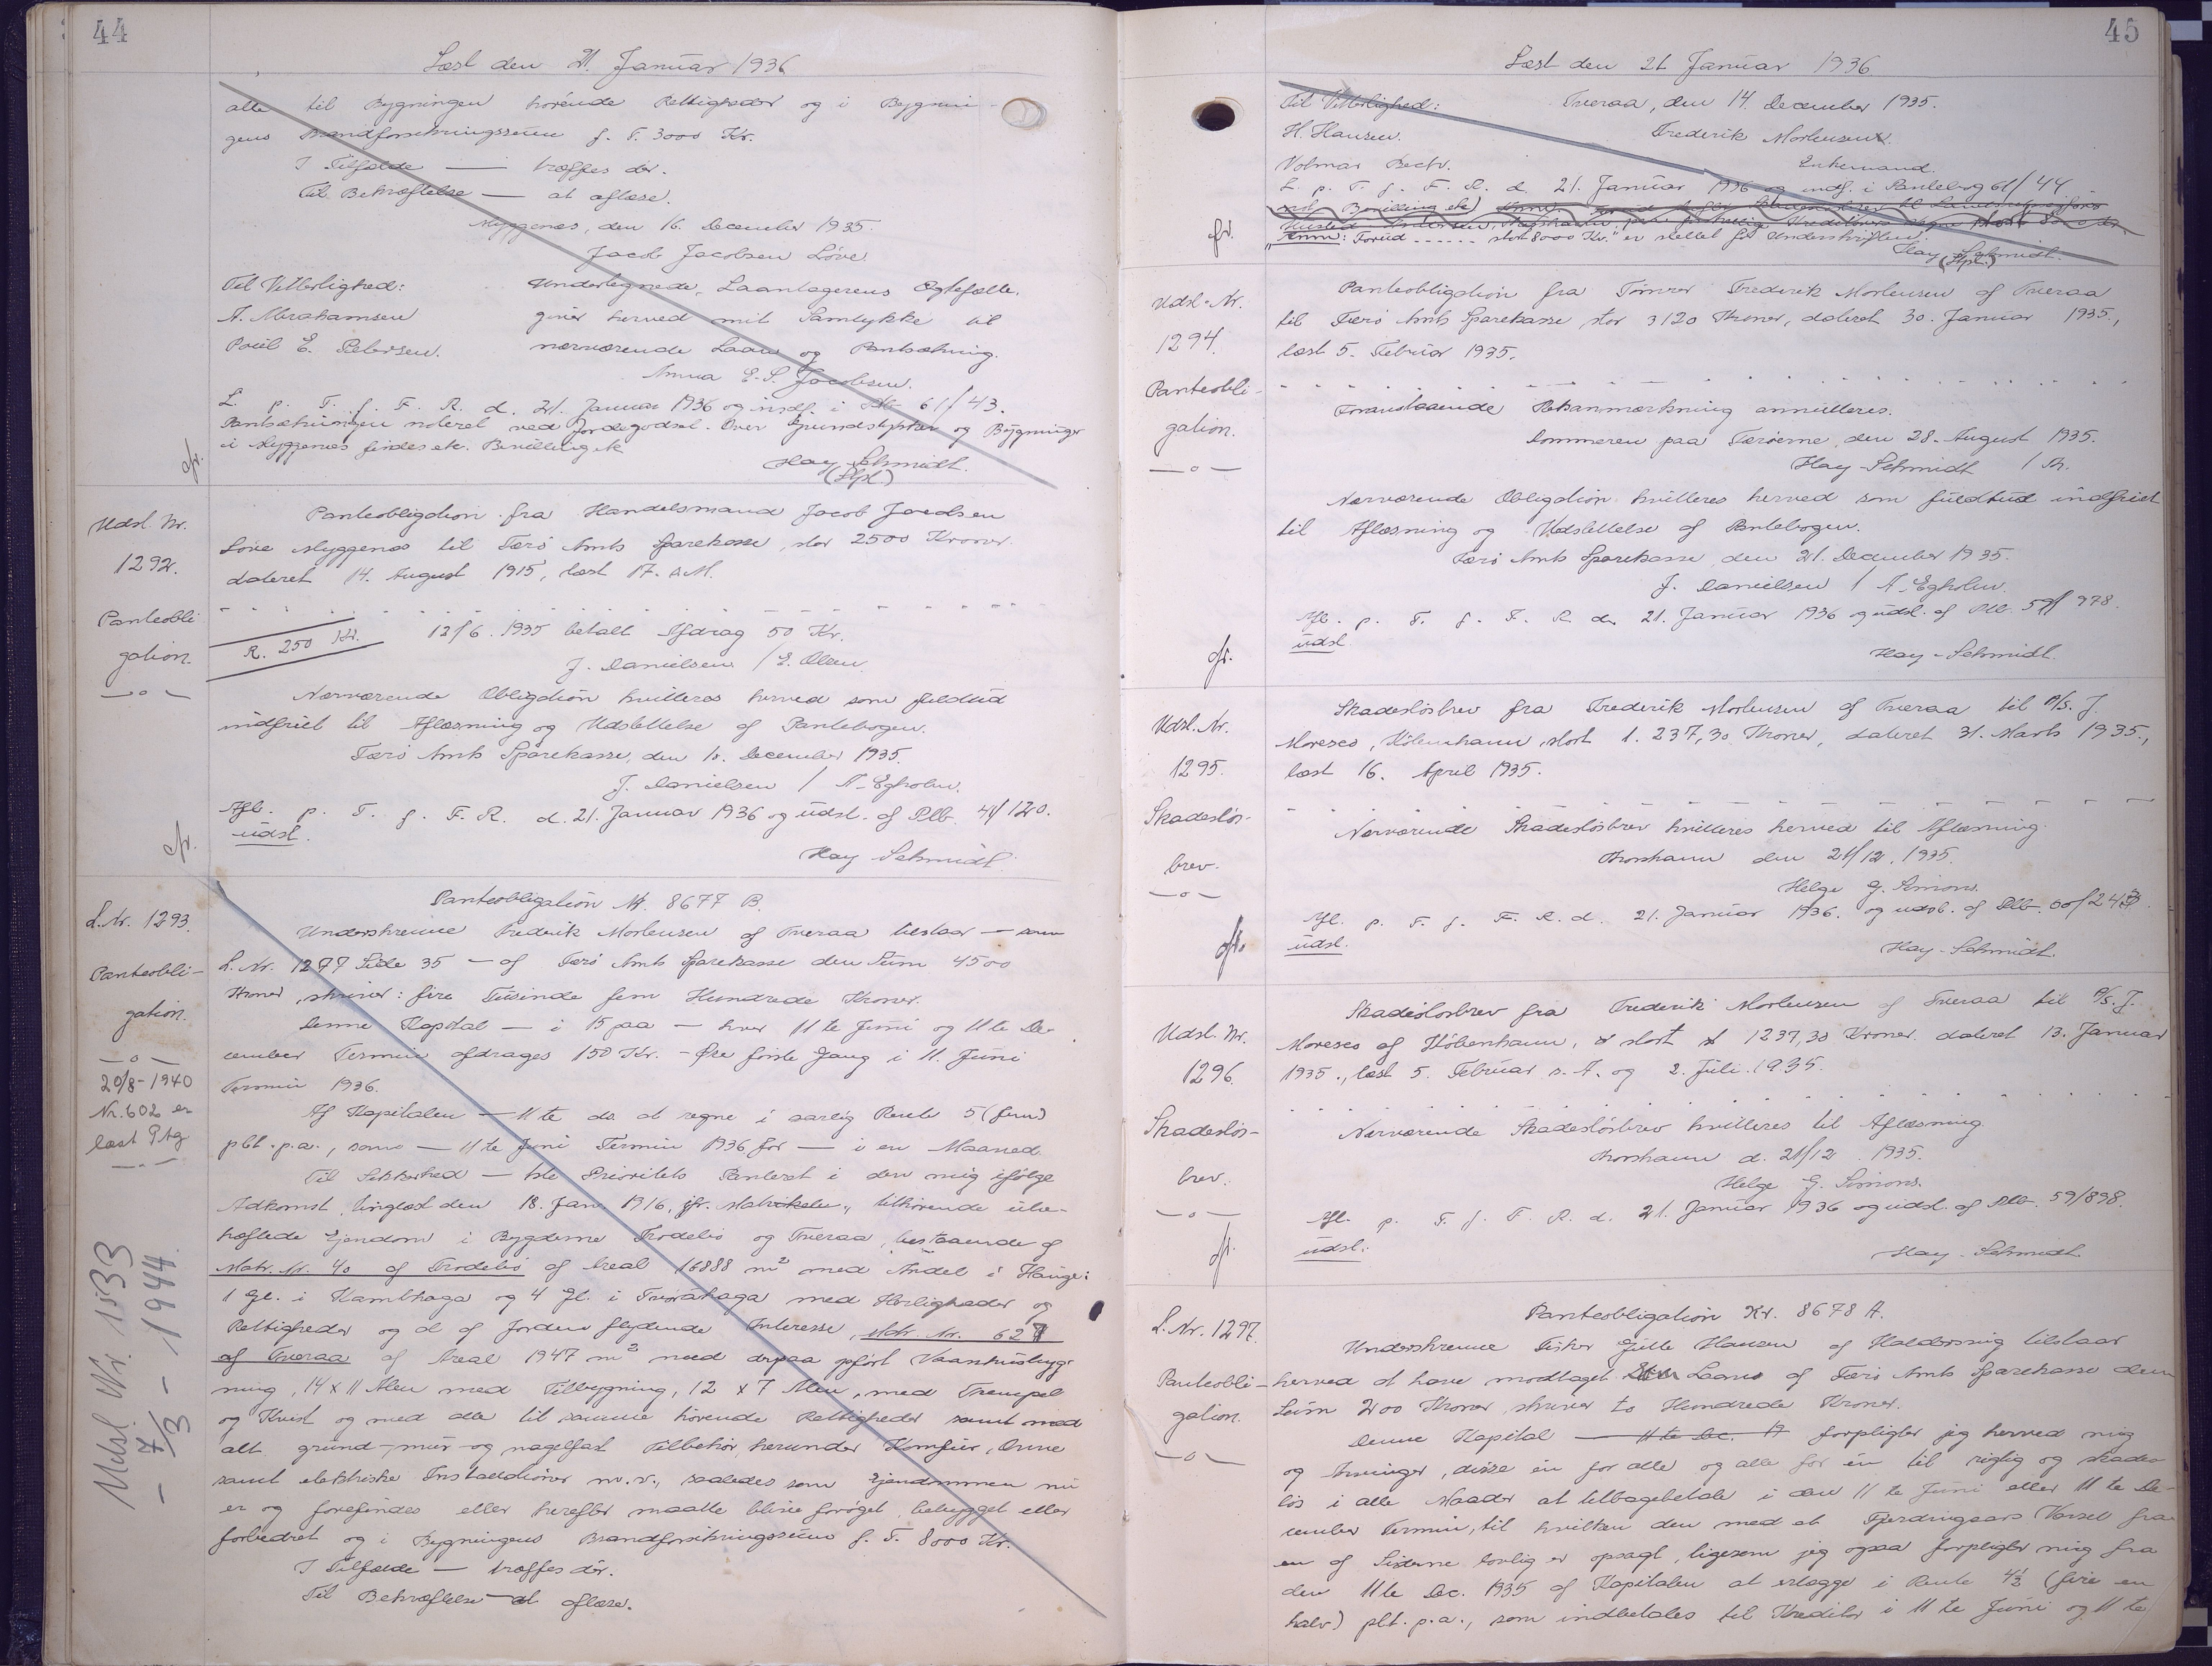 44
Læst den 21. Januar 1936
alle til Bygningen hørende Rettigheder og i Bygnin-
gens Brandforsikringssum f. T. 3000 Kr.
I Tilfælde — træffes dér.
Til Bekræftelse — at aflæse.
Myggenæs, den 16. December 1935.
Jacob Jacobsen Löve.
Til Vitterlighed: Undertegnede, Laantagerens Ægtefælle,
A. Abrahamsen giver herved mit Samtykke til
Poul E. Petersen. nærværende Laan og Pantsætning.
Anna E. S. Jacobsen.
L. p. T. f. F. R. d. 21. Januar 1936 og indf. i Pb 61/43.
Pantsætningen noteret ved Jordegodset. Over Grundstykker og Bygninger
i Myggenæs findes etc. Bevilling etc
Hay-Schmidt.
(Stpl.)
cfr.
Udsl. Nr.
1292.
Panteobli
gation.
—o—
Panteobligation fra Handelsmand Jacob Jacobsen
Löve Myggenæs til Færø Amts Sparekasse, stor 2500 Kroner.
dateret 14. August 1915, læst 17. s.M.
R. 250 Kr. 12/6. 1935 betalt Afdrag 50 Kr.
J. Danielsen / E. Olsen.
Nærværende Obligation kvitteres herved som fuldtud
indfriet til Aflæsning og Udslettelse af Pantebogen.
Færø Amts Sparekasse, den 10. December 1935.
J. Danielsen / N-Egholm.
Afl. p. T. f. F. R. d. 21. Januar 1936 og udsl. af Pltb. 41/120.
udsl.
Hay-Schmidt.
cfr.
L. Nr. 1293.
Panteobli-
gation.
—o—
20/8-1940
Nr. 602 er
læst Ptg
—"—
Udsl. Nr. 1533
- 7/3 - 1944.
Panteobligation Nr. 8677 B.
Underskrevne Frederik Mortensen af Tveraa tilstaar — som
L. Nr. 1277 Side 35 — af Færø Amts Sparekasse den Sum 4500
Kroner, skriver: fire Tusinde fem Hundrede Kroner.
Denne Kapital — i 15 paa — hver 11te Juni og 11te De-
cember Termin afdrages 150 Kr. - Øre første Gang i 11. Juni
Termin 1936.
Af Kapitalen — 11te ds. at regne i aarlig Rente 5 (fem)
pCt. p.a., som — 11te Juni Termin 1936 for — i en Maaned.
Til Sikkerhed — 1ste Prioritets Panteret i den mig ifølge
Adkomst, tinglæst den 18. Jan. 1916, jfr. Matrikelen, tilhørende ube-
hæftede Ejendom i Bygderne Frodebø og Tveraa, bestaaende af
Matr. Nr. 4o af Frodebö af Areal 16888 m² med Andel i Hauge:
1 Gl. i Kambhaga og 4 Gl. i Tveráhaga med Herligheder og
Rettigheder og al af Jorden flydende Interesse, Matr. Nr. 627
af Tveraa af Areal 1947 m² med derpaa opført Vaaningsbyg-
ning, 14 x 11 Alen med Tilbygning, 12 x 7 Alen, med Trempel
og Kvist og med alle til samme hørende Rettigheder samt med
alt grund-, mur- og nagelfast Tilbehør, herunder Komfur, Ovne
samt elektriske Installationer m.v., saaledes som Ejendommen nu
er og forefindes eller herefter maatte blive forøget, bebygget eller
forbedret og i Bygningens Brandforsikringssum f. T. 8000 Kr.
I Tilfælde — træffes dér.
Til Bekræftelse — at aflæse.
45
Læst den 21 Januar 1936
Til Vitterlighed: Tveraa, den 14. December 1935.
H. Hansen. Frederik Mortensen.
Volmar Bech. Enkemand.
L. p. T. f. F. R. d. 21. Januar 1936 og indf. i Pantebog 61/44
"Anm: Forud ...... stort 8000 Kr." er slettet før Underskriften.
Hay-Schmidt.
(Stpl.)
cfr.
Udsl. Nr.
1294.
Panteobli-
gation.
—o—
Panteobligation fra Tømrer Frederik Mortensen af Tveraa
til Færö Amts Sparekasse stor 3120 Kroner, dateret 30. Januar 1935.,
læst 5. Februar 1935.
Foranstaaende Retsanmærkning annulleres.
Dommeren paa Færøerne, den 28. August 1935.
Hay-Schmidt / R.
Nærværende Obligation kvitteres herved som fuldtud indfriet
til Aflæsning og Udslettelse af Pantebogen.
Færø Amts Sparekasse, den 21. December 1935.
J. Danielsen / N-Egholm.
Afl. p. T. f. F. R. d. 21. Januar 1936 og udsl. af Pltb. 59/978.
udsl
Hay-Schmidt.
cfr.
Udsl. Nr.
1295.
Skadesløs-
brev.
—o—
Skadesløsbrev fra Frederik Mortensen af Tveraa til A/S. J.
Moresco, København, stort 1.237,30 Kroner, dateret 31. Marts 1935.,
læst 16. April 1935.
Nærværende Skadesløsbrev kvitteres herved til Aflæsning.
Thorshavn den 21/12. 1935.
Helge G. Simons.
Afl. p. T. f. F. R. d. 21. Januar 1936. og udsl. af Pltb. 60/243.
udsl.
Hay-Schmidt.
cfr.
Udsl. Nr.
1296.
Skadesløs-
brev.
—o—
Skadesløsbrev fra Frederik Mortensen af Tveraa til A/S. J.
Moresco af København, stort 1237,30 Kroner dateret 13. Januar
1935., læst 5. Februar s. A. og 2. Juli 1935.
Nærværende Skadesløsbrev kvitteres til Aflæsning.
Thorshavn d. 21/12. 1935.
Helge G. Simons.
Afl. p. T. f. F. R. d. 21. Januar 1936 og udsl. af Pltb. 59/898.
udsl.
Hay-Schmidt.
cfr.
L. Nr. 1297.
Panteobli-
gation.
—o—
Panteobligation Nr. 8678 A.
Underskrevne Fisker Gulle Hansen af Haldersvig tilstaar
herved at have modtaget Laans af Færø Amts Sparekasse den
Sum 200 Kroner, skriver to Hundrede Kroner.
Denne Kapital — 11te Dec. A forpligter jeg herved mig
og Arvinger, disse én for alle og alle for én til rigtig og skades-
løs i alle Maader at tilbagebetale i den 11te Juni eller 11te De-
cember Termin, til hvilken den med et Fjerdingaars Varsel fra
en af Siderne lovlig er opsagt, ligesom jeg ogsaa forpligter mig fra
den 11te Dec. 1935 af Kapitalen at erlægge i Rente 4½ (fire en
halv) pCt. p.a., som indbetales til Kreditor i 11te Juni og 11te